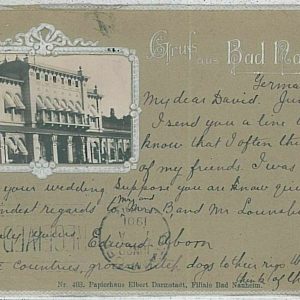 Gruss aus Bad Na
Germa
My dear David. Ju
I send you a line t
know that I often th
of my friends. I was
your wedding. Suppose you are know quie
ndest regards to Mrs B and Mr Lounsbe
my and
Edward
1901
countries, dogs to her rigs
think of
Nr. 463. Papierhaus Elbert Darmstadt, Filiale Bad Nauheim.